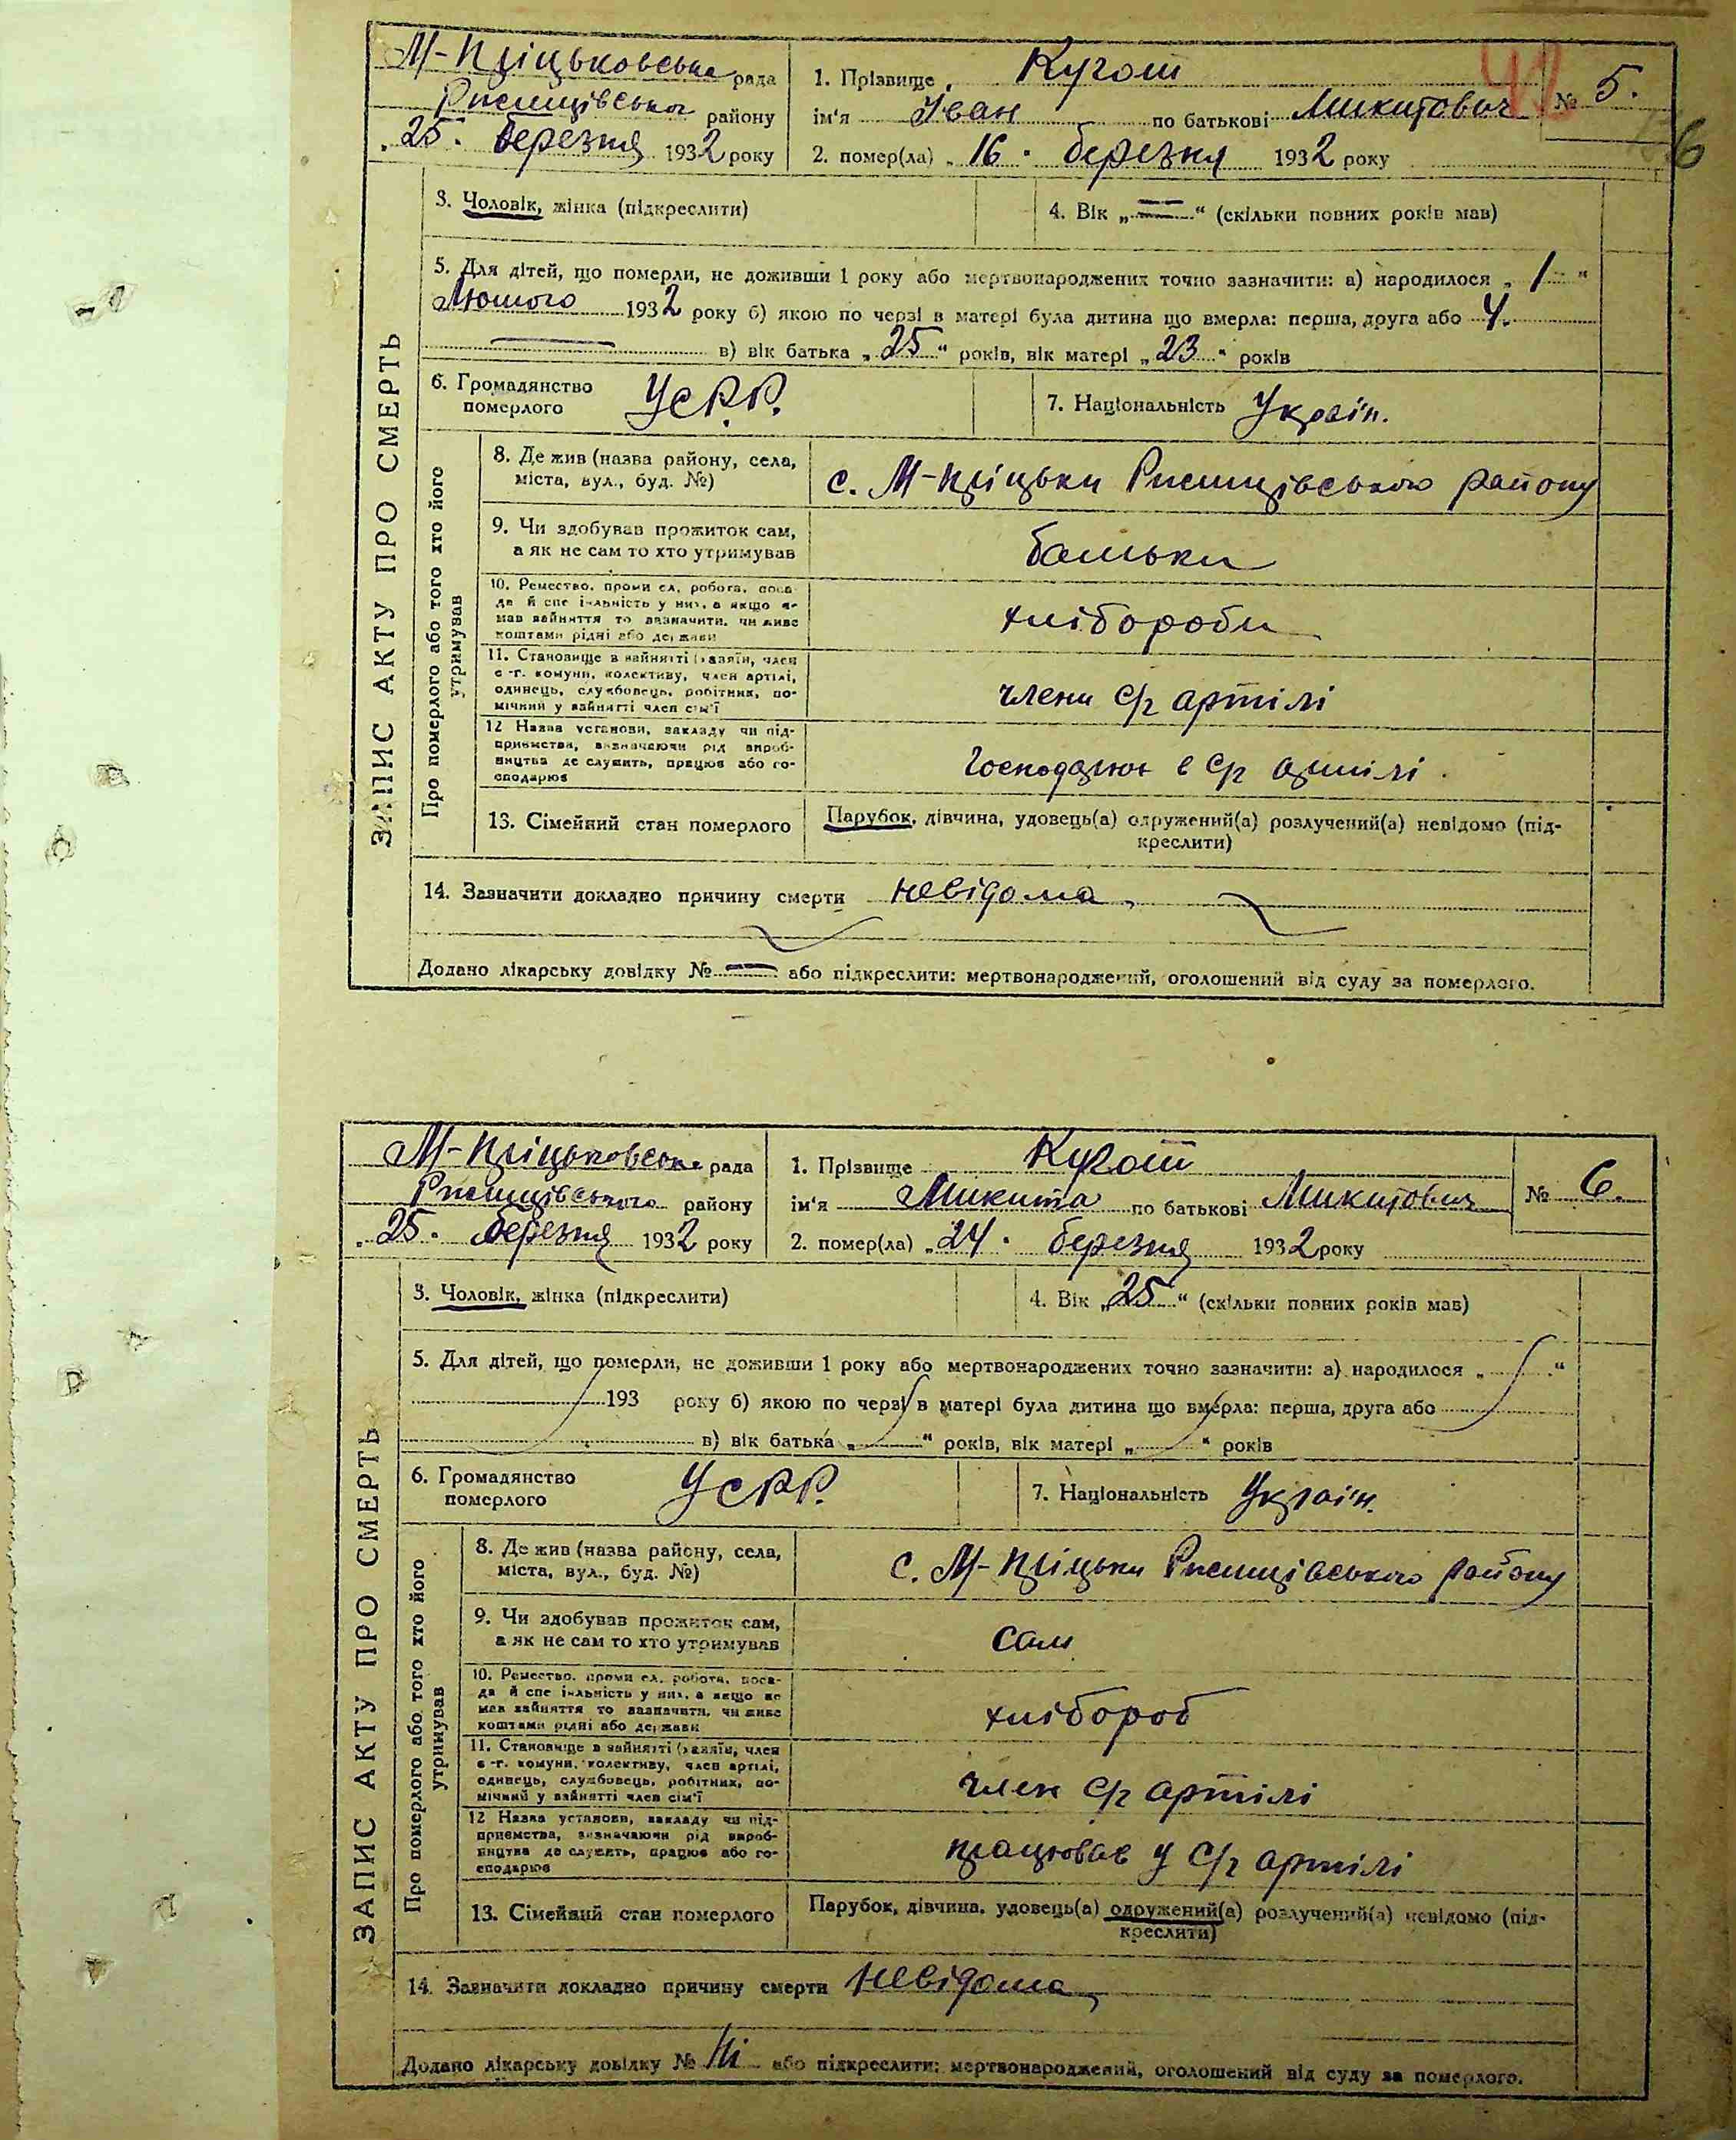 М-Пріцьковська рада
Ржищівського району
„25" березня 1932 року
1. Прізвище Кугот
ім'я Іван по батькові Микитович
2. помер(ла) „16" березня 1932 року
№ 5.
42
6
ЗАПИС АКТУ ПРО СМЕРТЬ
3. Чоловік, жінка (підкреслити)
4. Вік „=" (скільки повних років мав)
5. Для дітей, що померли, не доживши 1 року або мертвонароджених точно зазначити: а) народилося „1"
Лютого 1932 року б) якою по черзі в матері була дитина що вмерла: перша, друга або 4.
в) вік батька „25" років, вік матері „23" років
6. Громадянство
померлого
УСРР.
7. Національність Україн.
Про померлого або того хто його
утримував
8. Де жив (назва району, села,
міста, вул., буд. №)
с. М-Пріцьки Ржищівського району
9. Чи здобував прожиток сам,
а як не сам то хто утримував
батьки
10. Ремество, проми сл, робота, поса-
да й спе іяльність у них, а якщо не
мав зайняття то зазначити, чи живе
коштами рідні або держави
хлібороби
11. Становище в зайнятті (хазяїн, член
с.-г. комуни, колективу, член артілі,
одинець, службовець, робітник, по-
мічний у зайнятті член сім'ї
члени с/г артілі
12 Назва установи, закладу чи під-
приємства, визначаючи рід вироб-
ництва де служить, працює або го-
сподарює
Господарює в с/г артілі.
13. Сімейний стан померлого
Парубок, дівчина, удовець(а) одружений(а) розлучений(а) невідомо (під-
креслити)
14. Зазначити докладно причину смерти невідома
Додано лікарську довідку № — або підкреслити: мертвонароджений, оголошений від суду за померлого.
М-Пріцьковська рада
Ржищівського району
„25" березня 1932 року
1. Прізвище Кугот
ім'я Микита по батькові Микитович
2. помер(ла) „24" березня 1932 року
№ 6.
ЗАПИС АКТУ ПРО СМЕРТЬ
3. Чоловік, жінка (підкреслити)
4. Вік „25" (скільки повних років мав)
5. Для дітей, що померли, не доживши 1 року або мертвонароджених точно зазначити: а) народилося „ "
193 року б) якою по черзі в матері була дитина що вмерла: перша, друга або
в) вік батька „ " років, вік матері „ " років
6. Громадянство
померлого
УСРР.
7. Національність Україн.
Про померлого або того хто його
утримував
8. Де жив (назва району, села,
міста, вул., буд. №)
с. М-Пріцьки Ржищівського району
9. Чи здобував прожиток сам,
а як не сам то хто утримував
сам
10. Ремество, проми сл, робота, поса-
да й спе іяльність у них, а якщо не
мав зайняття то зазначити, чи живе
коштами рідні або держави
хлібороб
11. Становище в зайнятті (хазяїн, член
с.-г. комуни, колективу, член артілі,
одинець, службовець, робітник, по-
мічний у зайнятті член сім'ї
член с/г артілі
12 Назва установи, закладу чи під-
приємства, визначаючи рід вироб-
ництва де служить, працює або го-
сподарює
працював у с/г артілі
13. Сімейний стан померлого
Парубок, дівчина, удовець(а) одружений(а) розлучений(а) невідомо (під-
креслити)
14. Зазначити докладно причину смерти невідома
Додано лікарську довідку № Ні або підкреслити: мертвонароджений, оголошений від суду за померлого.